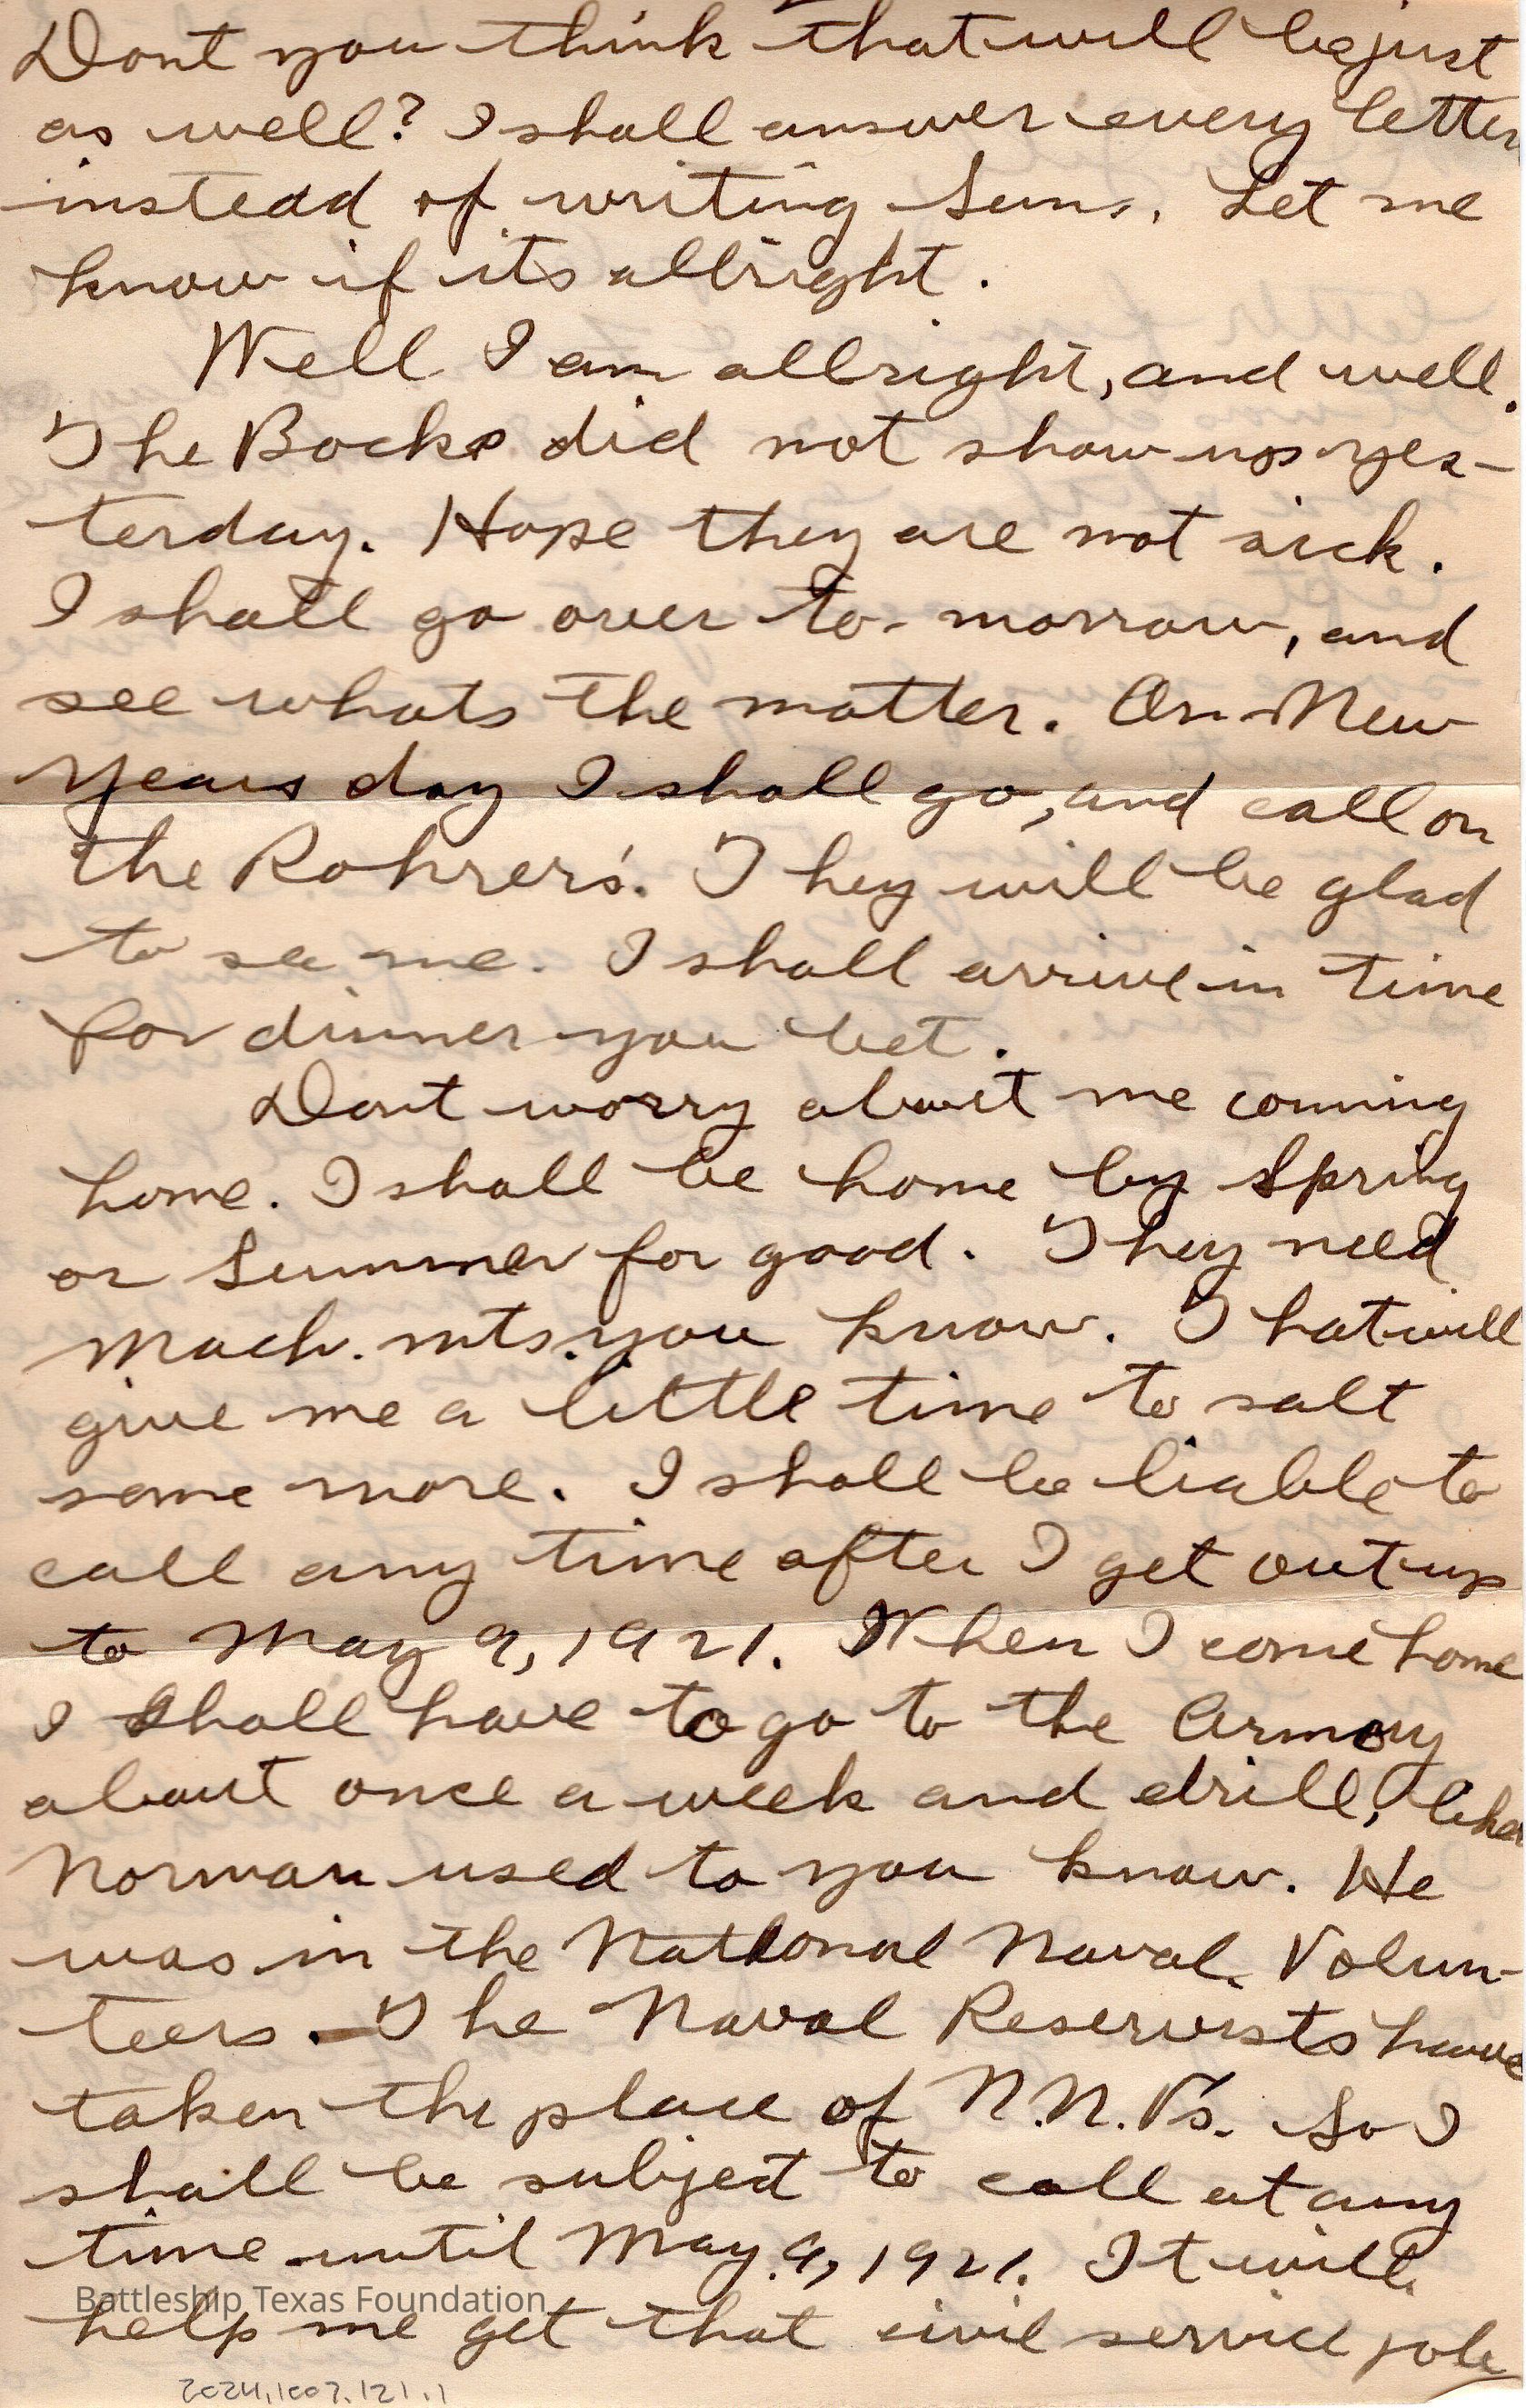 Dont you think that will be just
as well? I shall answer every letter
instead of writing Suns. Let me
know if its allright.
Well I am allright, and well.
The Bocks did not show up yes-
terday. Hope they are not sick.
I shall go over to-morrow, and
see whats the matter. On New
Years day I shall go, and call on
the Rohrer's. They will be glad
to see me. I shall arrive in time
for dinner you bet.
Dont worry about me coming
home. I shall be home by Spring
or Summer for good. They need
Mach. mts. you know. That will
give me a little time to salt
some more. I shall be liable to
call any time after I get out up
to May 9, 1921. When I come home
I shall have to go to the Armory
about once a week and drill, like
Norman used to you know. He
was in the National Naval Volun-
teers. The Naval Reservists have
taken the place of N.N.V's. So I
shall be subject to call at any
time until May 9, 1921. It will
Battleship Texas Foundation
help me get that civil service job
2024.1007.121.1